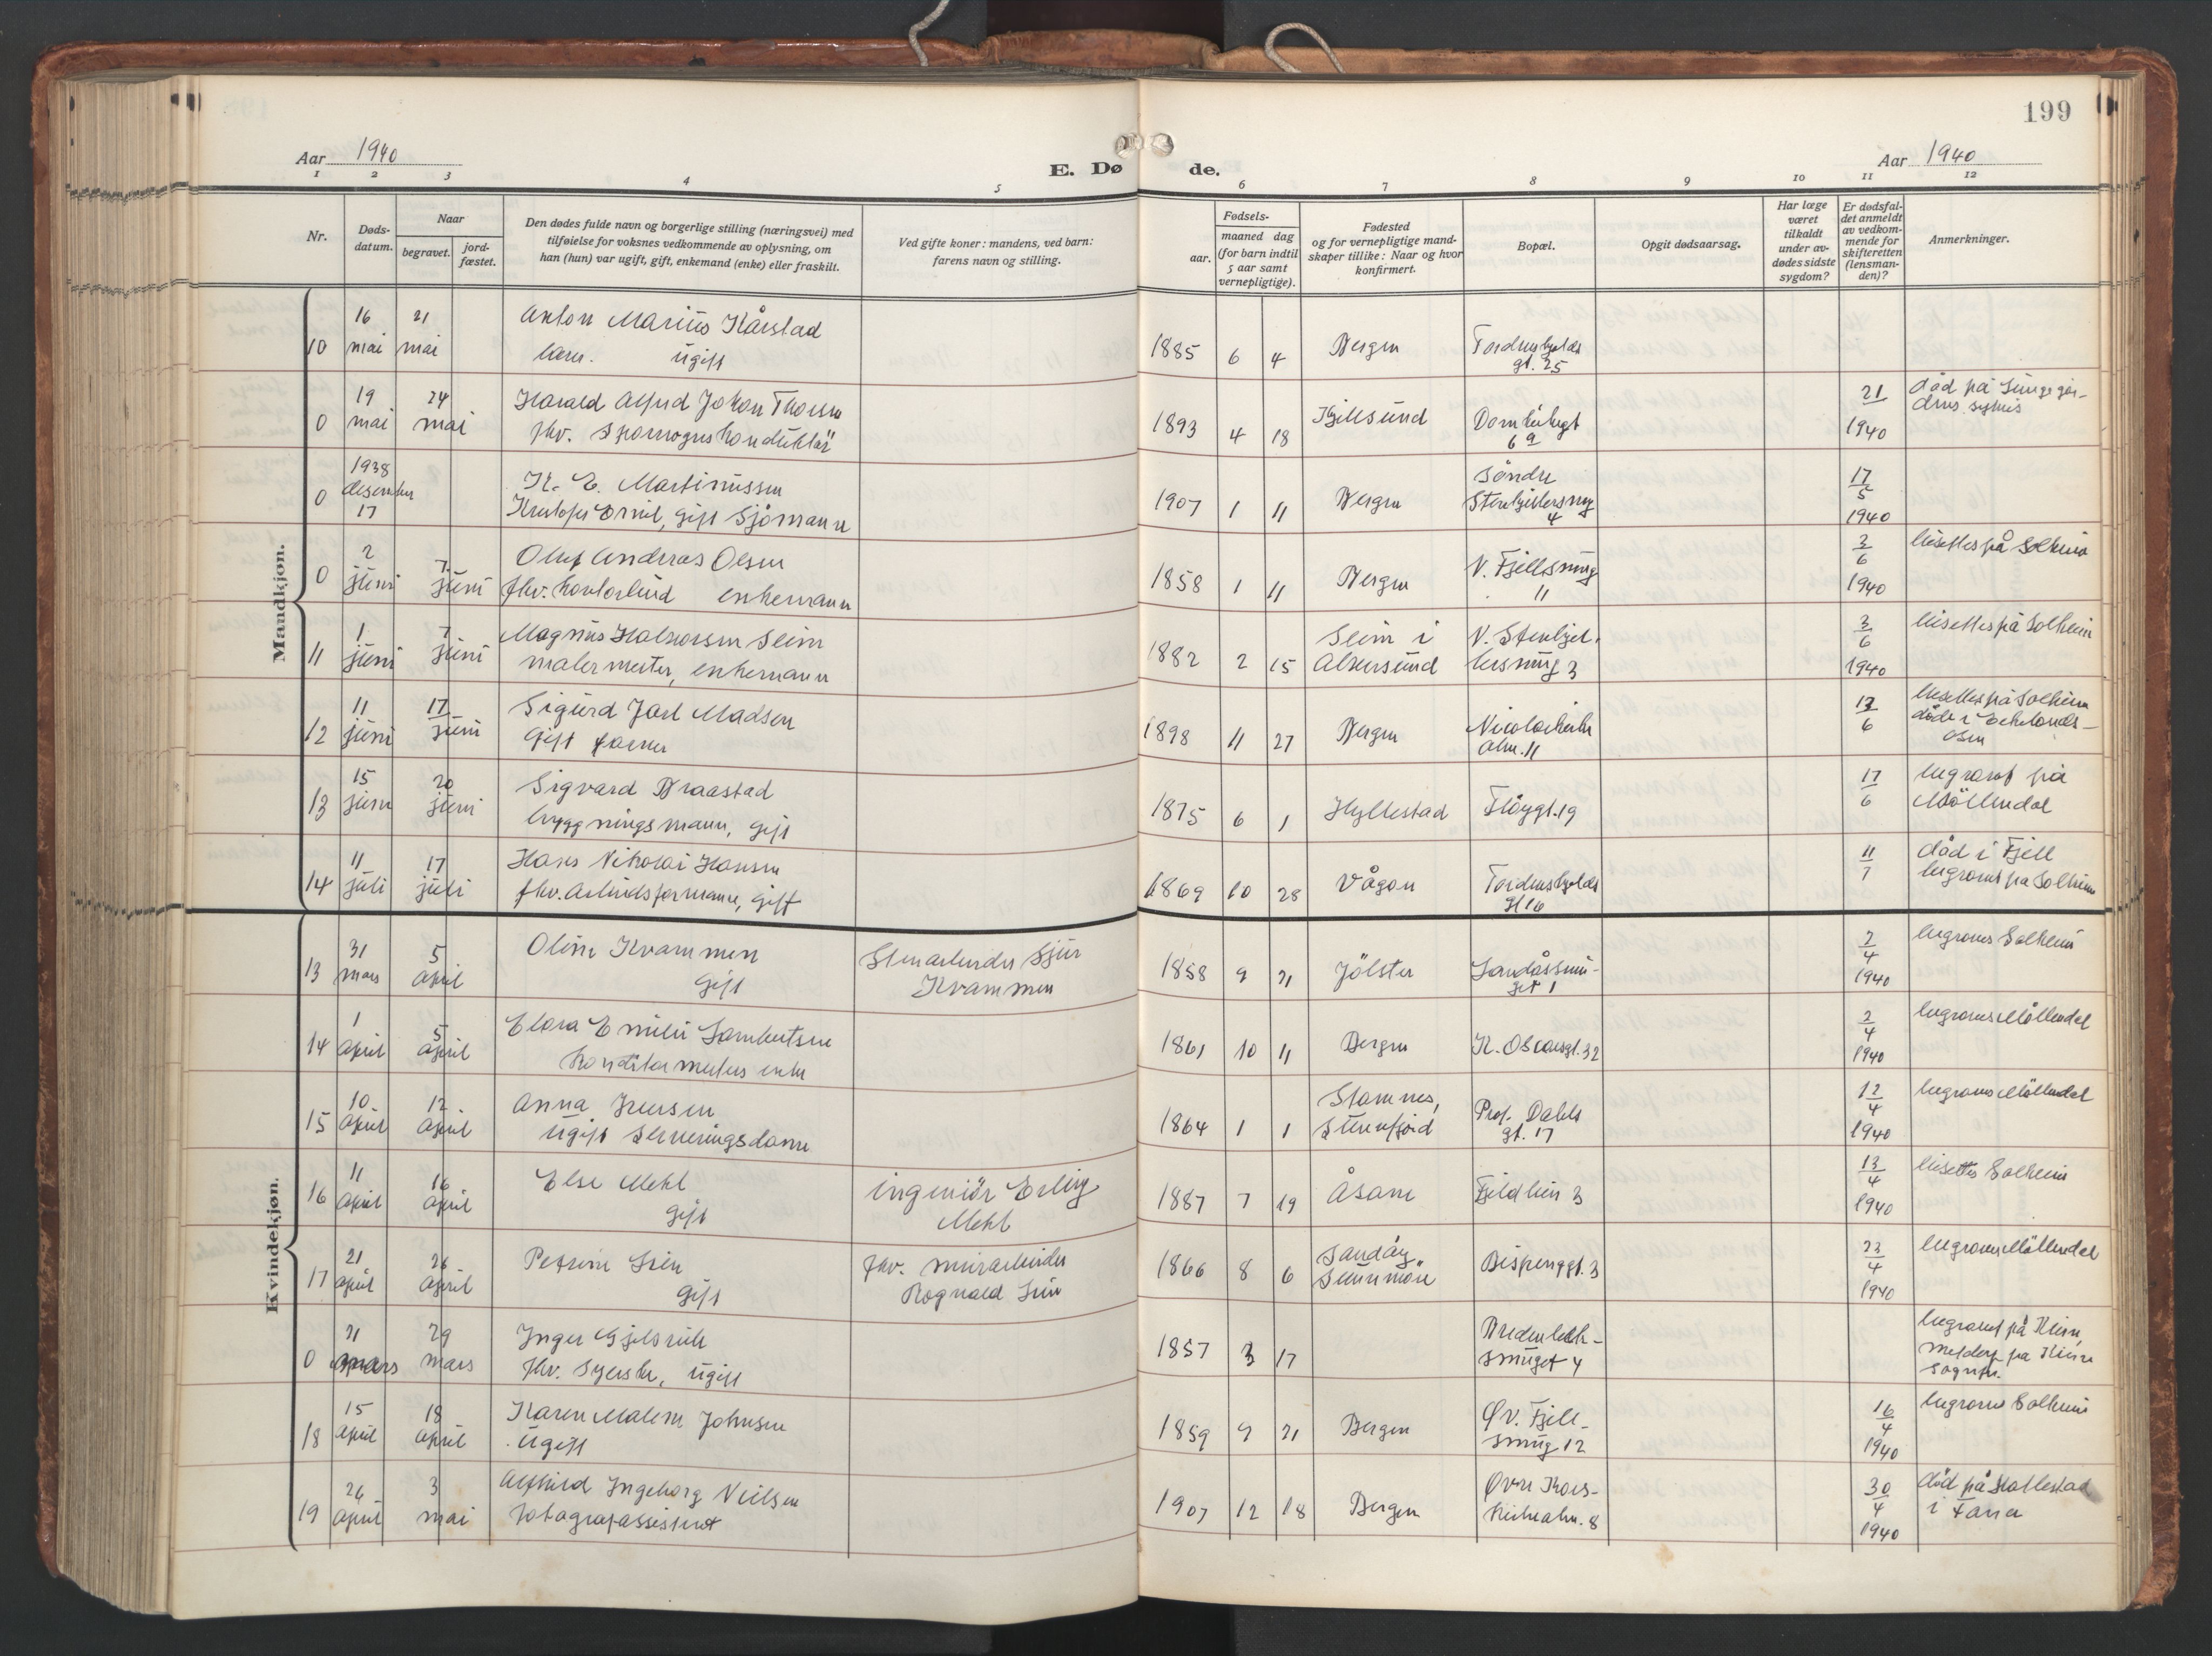 199
Aar 1940
E. Dø
de.
Aar 1940
1 2 3 4 5 6 7 8 9 10 11 12
Nr.
Døds-
datum.
Naar
begravet.
jord-
fæstet.
Den dødes fulde navn og borgerlige stilling (næringsvei) med
tilføielse for voksnes vedkommende av oplysning, om
han (hun) var ugift, gift, enkemand (enke) eller fraskilt.
Ved gifte koner: mandens, ved barn:
farens navn og stilling.
Fødsels-
aar.
maaned dag
(for barn indtil
5 aar samt
vernepligtige).
Fødested
og for vernepligtige mand-
skaper tillike: Naar og hvor
konfirmert.
Bopæl.
Opgit dødsaarsag.
Har læge
været
tilkaldt
under av-
dødes sidste
sygdom?
Er dødsfal-
det anmeldt
av vedkom-
mende for
skifteretten
(lensman-
den)?
Anmerkninger.
Mandkjøn.
16 21 Anton Marius Kårstad
10 mai mai ugift 1885 6 4 Bergen Tordenskjolds
gt. 25
19 24 Harald Alfred Johan Thorsen
0 mai mai fhv. sporvognskonduktör 1893 4 18 Domkirkegt
6 a
21
1940
död på Lungegår-
dens sykehus
1938 K. E. Martinussen
0 desember
17
Kristofer Emil, gift Sjömann 1907 1 11 Bergen Söndre
Stenkjellersmug
4
17
5
1940
2 7. Oluf Andreas Olsen
0 juni juni fhv. kontorbud enkemann 1858 1 11 Bergen V. Fjellsmug
11
3
6
1940
bisettes på Solheim
1 7 Magnus Halvorsen Seim
11 juni juni malermester, enkemann 1882 2 15 Seim i
Alversund
V. Stenkjel-
lersmug 3
3
6
1940
bisettes på Solheim
11 17 Sigurd Jarl Madsen
12 juni juni gift 1898 11 27 Bergen Nicolaikirke
alm. 11
13
6
bisettes på Solheim
döde i Eidslands-
15 20 Sigvard Braastad
13 juni juni bygningsmann, gift 1875 6 1 Hyllestad Flöygt. 19
17
6
begravet på
Möllendal
11 17 Hans Nikolai Hansen
14 juli juli fhv. Arbeidsformann, gift 1869 10 28 Vågan Tordenskjolds
gt 16
11
7
död i Fjell
begravet på Solheim
Kvindekjøn.
31 5 Oline Kvammen
13 mars april gift
Stenarbeider Sjur
Kvammen
1858 9 21 Jölster Landåssmu-
get 1
2
4
1940
begraves Solheim
1 5 Clara Emilie Lambertsen
14 april april konditormesters enke 1861 10 11 Bergen K. Oscarsgt. 32
2
4
1940
begraves Möllendal
10 12 Anna Iversen
15 april april ugift serveringsdame 1864 1 1 Stamnes,
Prof. Dahls
gt. 17
12
4
1940
begraves Möllendal
11 16 Else Mehl
16 april april gift
ingeniör Erling
Mehl
1887 7 19 Åsane Fjeldlien 3
13
4
1940
bisettes Solheim
21 26 Petrine
17 april april gift
fhv. murarbeider
Rognald
1866 8 6 Sandöy
Sunnmöre
Bispenggt. 3
23
4
1940
begraves Möllendal
21 29 Inger
0 mars mars fhv. Syerske, ugift 1857 3 17
Bredenbek-
smuget 4
15 18 Karen Malene Johnsen
18 april april ugift 1859 9 21 Bergen Øv. Fjell-
smug 12
16
4
1940
begraves Solheim
26 3 Alfhild Ingeborg Nielsen
19 april mai fotografassistent 1907 12 18 Bergen Øvre Kors-
kirkealm. 8
30
4
1940
död på
i Fana